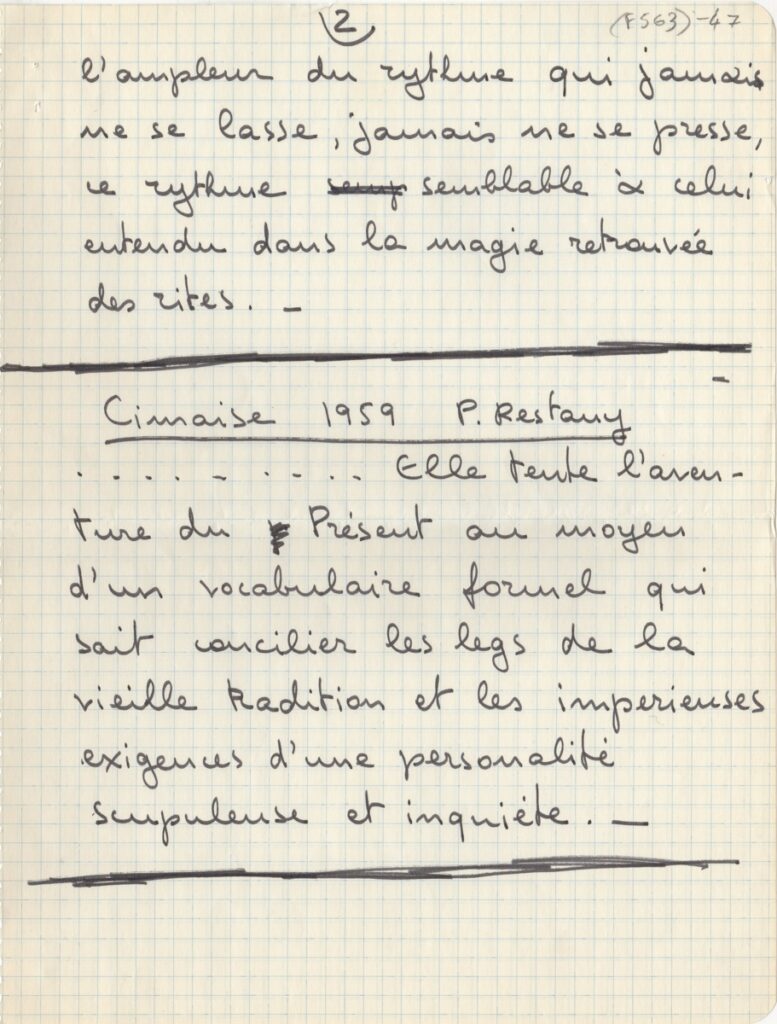 2
(FS63)-47
l'ampleur du rythme qui jamais
ne se lasse, jamais ne se presse,
ce rythme semblable à celui
entendu dans la magie retrouvée
des rites. _
Cimaise 1959 P. Restany
. . . . - . - . . . Elle tente l'aven-
ture du Présent au moyen
d'un vocabulaire formel qui
sait concilier les legs de la
vieille tradition et les imperieuses
exigences d'une personalité
scupuleuse et inquiéte. _